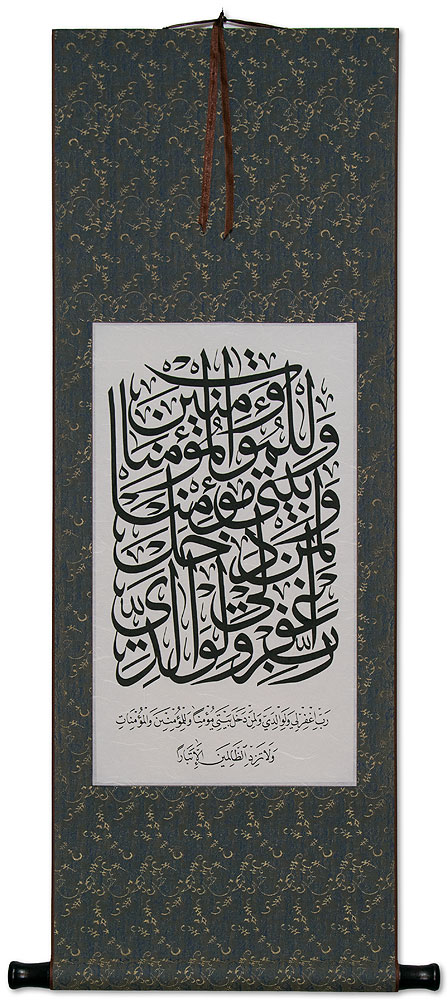 رب اغفر لي ولوالدي
ولمن دخل
بيتي مؤمنا
وللمؤمنين والمؤمنات
رَبِّ اغْفِرْ لِي وَلِوَالِدَيَّ وَلِمَنْ دَخَلَ بَيْتِيَ مُؤْمِنًا وَلِلْمُؤْمِنِينَ وَالْمُؤْمِنَاتِ
وَلَا تَزِدِ الظَّالِمِينَ إِلَّا تَبَارًا